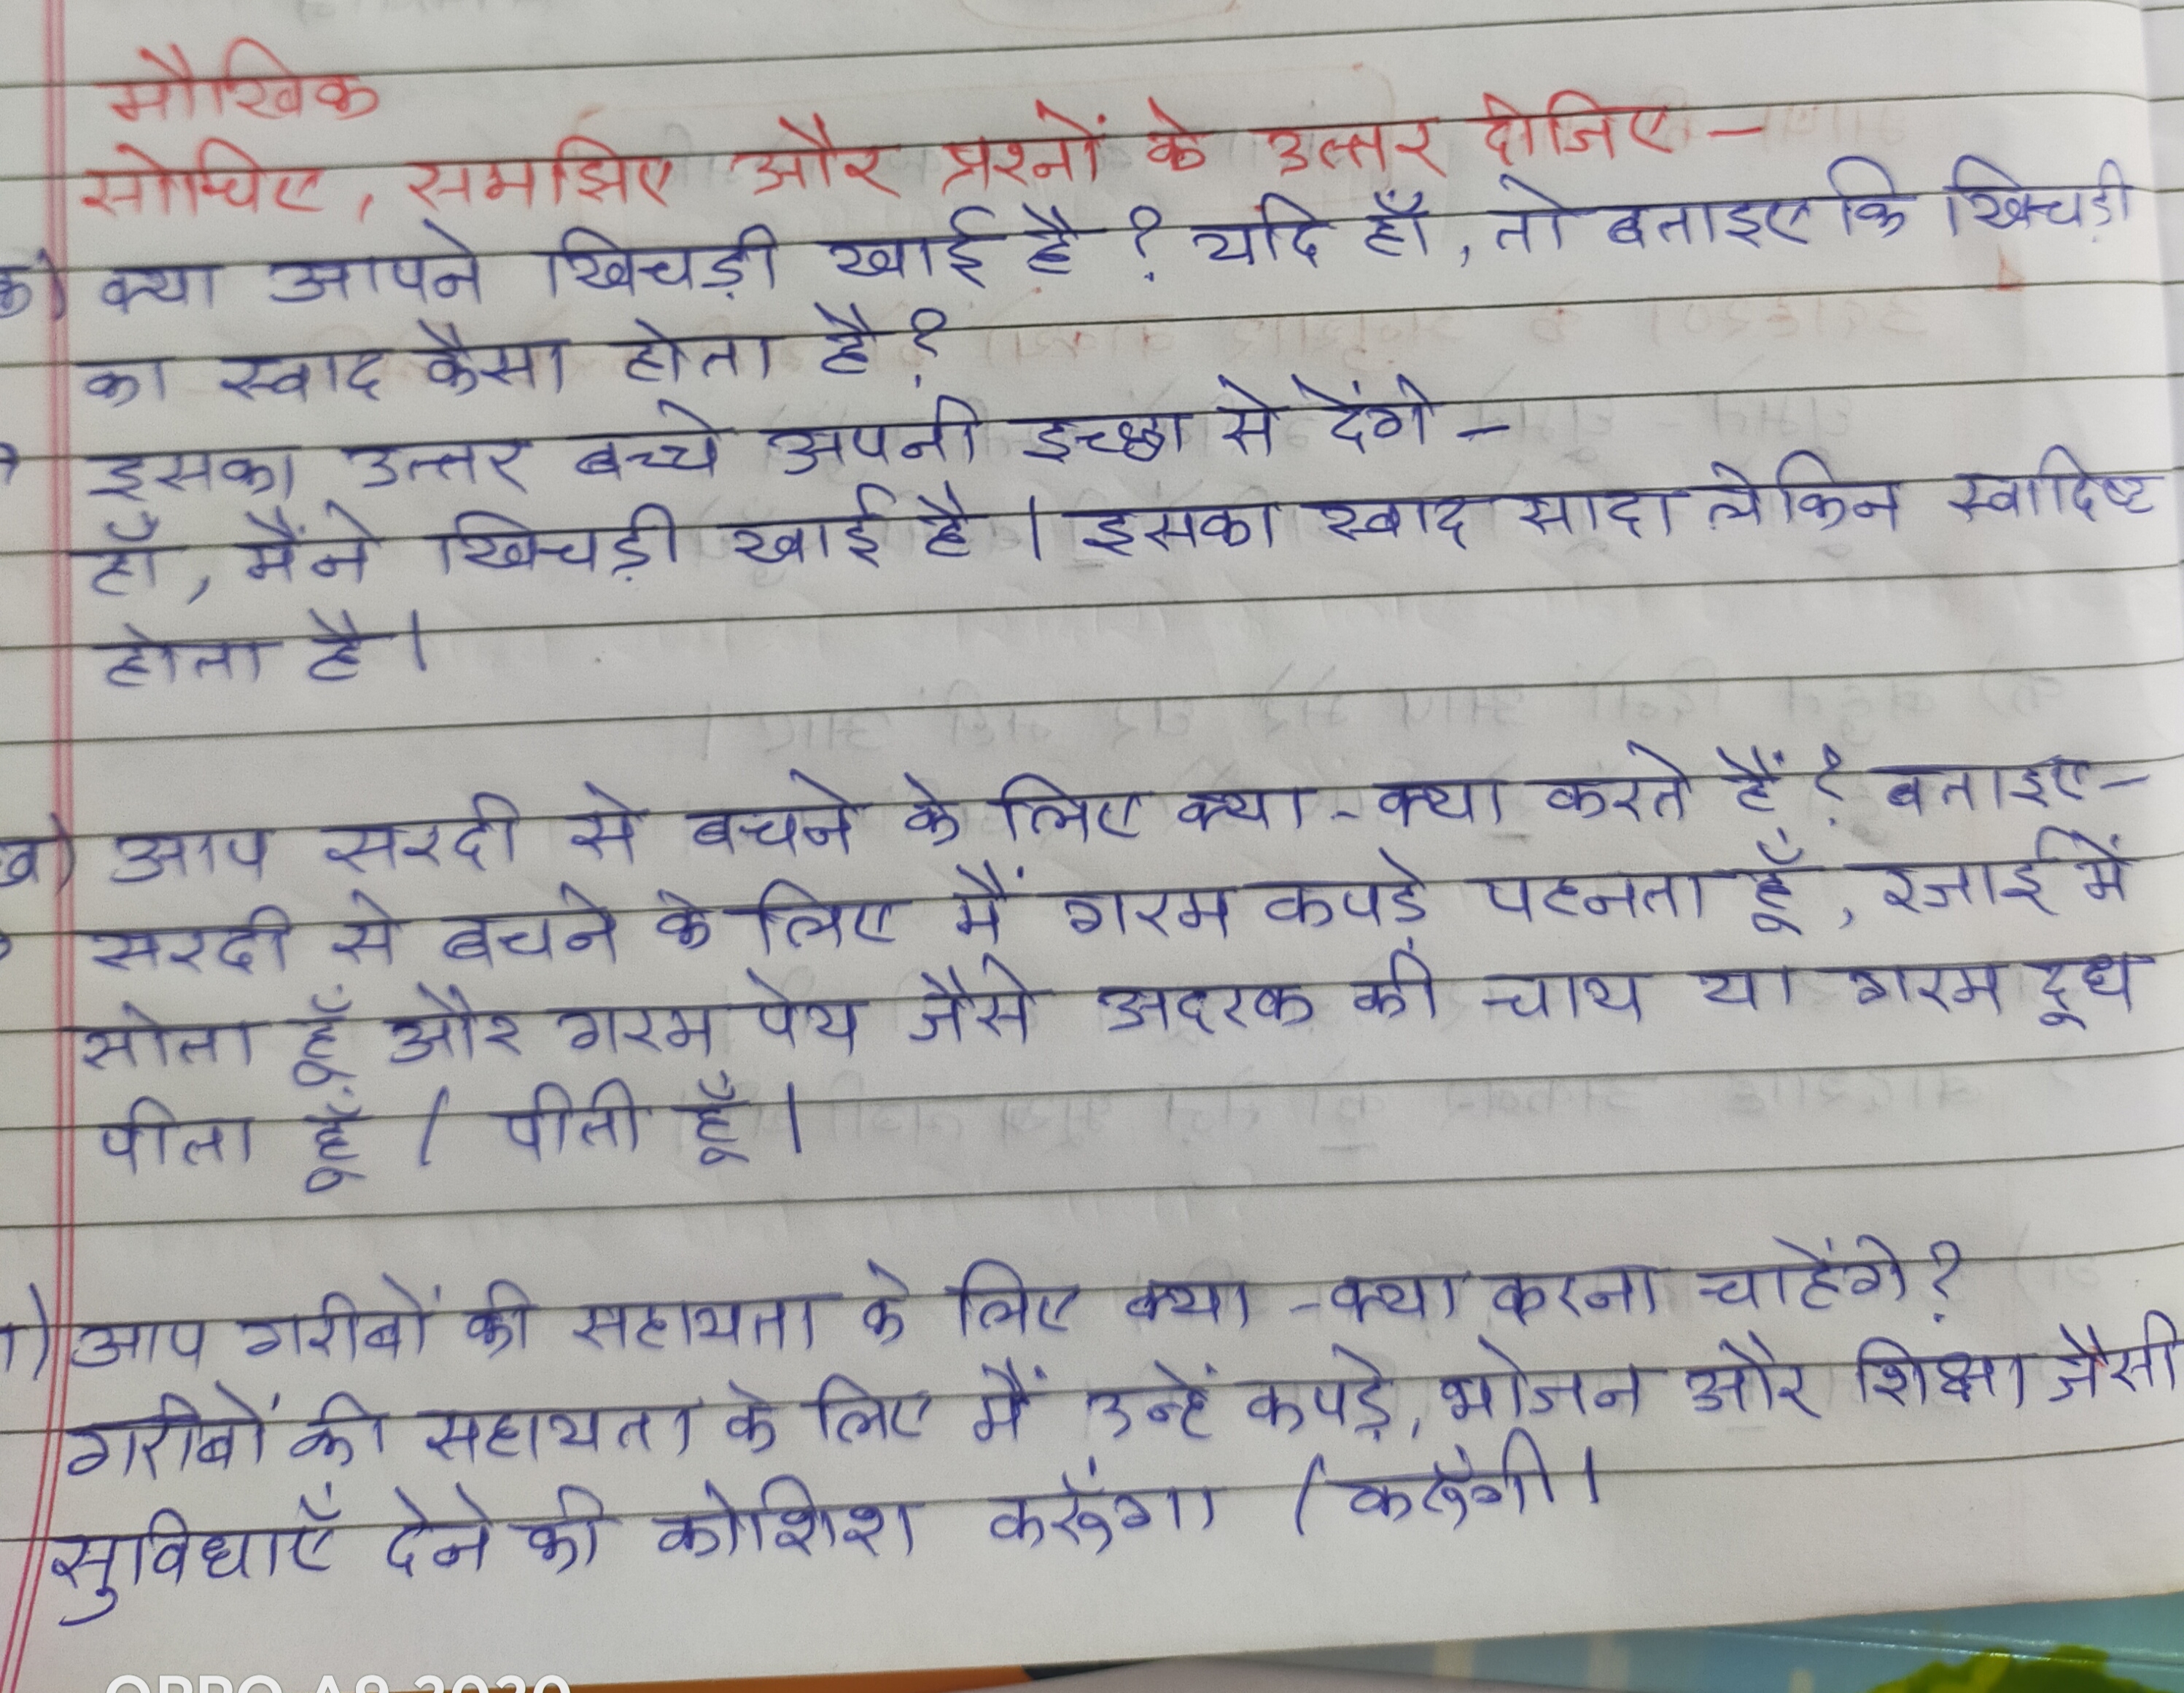 मौखिक
सोचिए, समझिए और प्रश्नों के उत्तर दीजिए -
क) क्या आपने खिचड़ी खाई है ? यदि हाँ, तो बताइए कि खिचड़ी
का स्वाद कैसा होता है ?
इसका उत्तर बच्चे अपनी इच्छा से देंगे -
हाँ, मैंने खिचड़ी खाई है । इसका स्वाद सादा लेकिन स्वादिष्ट
होता है ।
ख) आप सरदी से बचने के लिए क्या - क्या करते हैं ? बताइए -
सरदी से बचने के लिए मैं गरम कपडे पहनता हूँ, रजाई में
सोता हूँ और गरम पेय जैसे अदरक की चाय या गरम दूध
पीता हूँ / पीती हूँ ।
ग) आप गरीबों की सहायता के लिए क्या - क्या करना चाहेंगे ?
गरीबों की सहायता के लिए मैं उन्हें कपड़े, भोजन और शिक्षा जैसी
सुविधाएँ देने की कोशिश करूँगा / करूँगी ।
OPPO A9 2020